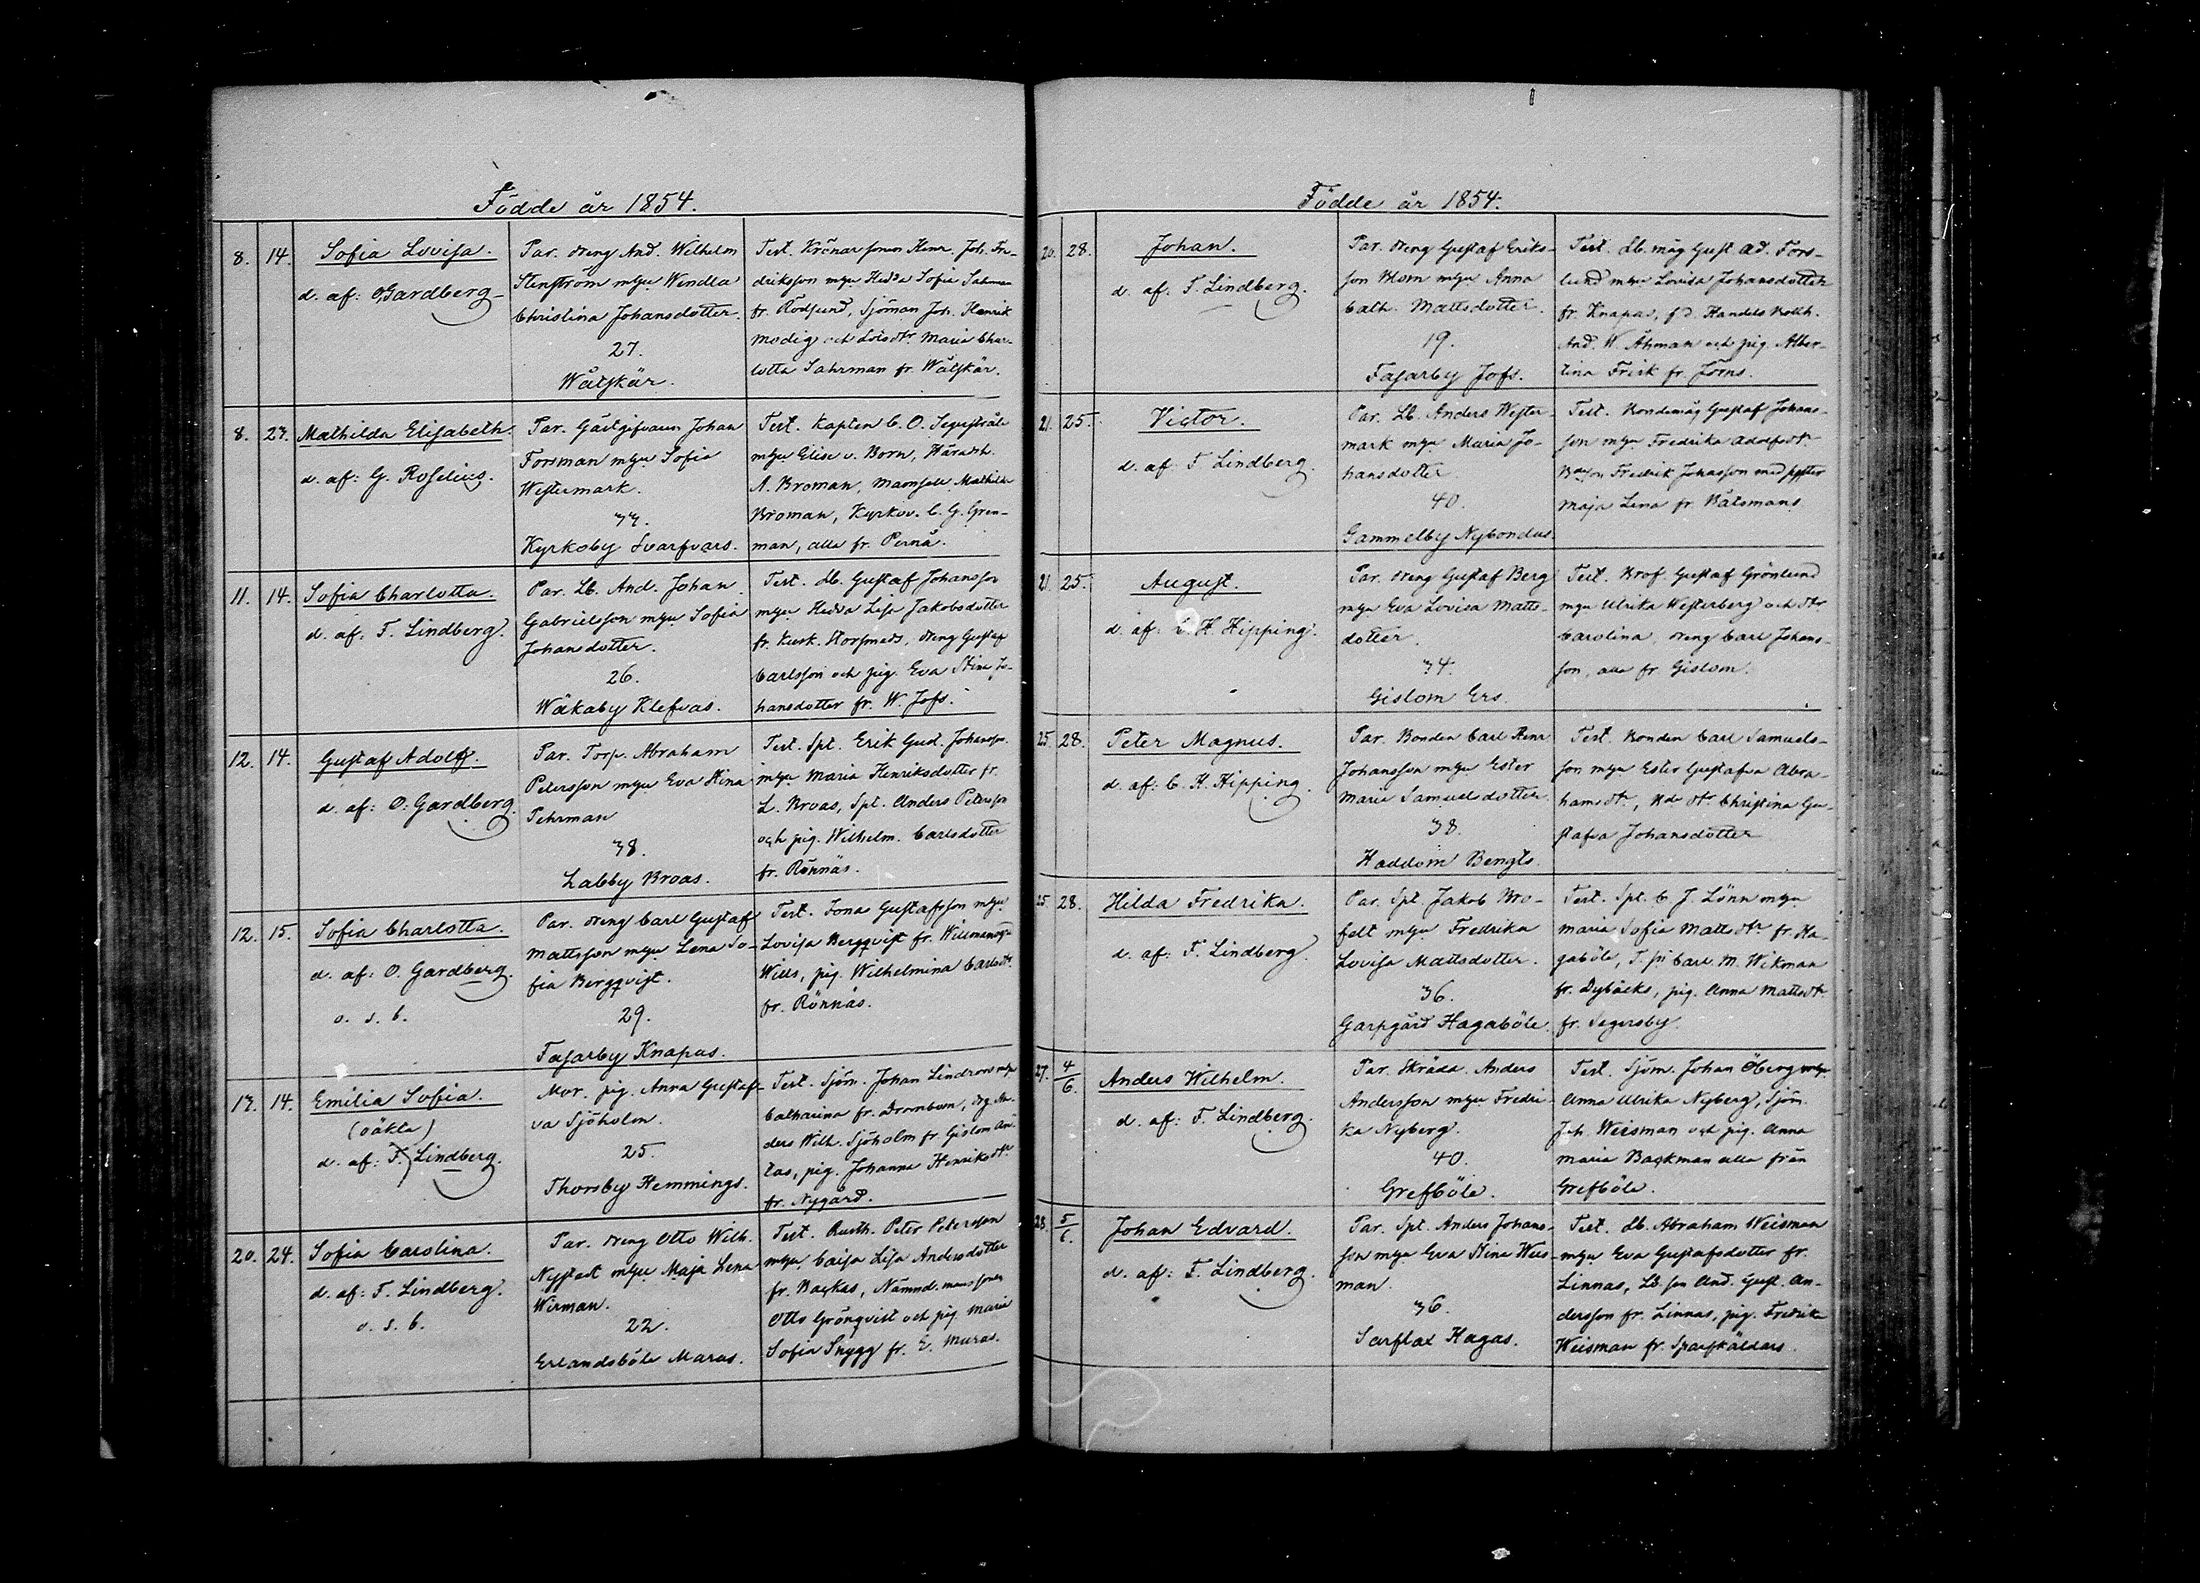 Födde år 1854.
8. 14. Sofia Lovisa.
d. af: O. Gardberg
Par. dreng And. Wilhelm
Stenström mhu Wendla
Christina Johansdotter.
27.
Wåtskär.
Test. Henr. Joh. Fre-
driksson mhu Hedda Sofia Sahrman
fr. Rödsund, Sjöman Joh. Henrik
Modig och Maria Char-
lotta Sahrman fr. Wåtskär.
8. 23. Mathilda Elisabeth.
d. af: G. Roselius.
Par. Gästgifvaren Johan
Forsman mhu Sofia
Westermark.
33.
Kyrkoby Svarfvars.
Test. Kapten C. O. Segerstråle
mhu Elise v. Born, Häradsh.
A. Broman, Mamsell Mathilda
Broman, Kyrkov. C. G. Gren-
man, alla fr. Pernå.
11. 14. Sofia Charlotta.
d. af: F. Lindberg.
Par. Lb. And. Johan
Gabrielsson mhu Sofia
Johansdotter.
26.
Wäkaby Klefvas.
Test. Lb. Gustaf Johansson
mhu Hedda Lisa Jakobsdotter
fr. Kusk. dreng Gustaf
Carlsson och pig. Eva Stina Jo-
hansdotter fr. W. Jofs.
12. 14. Gustaf Adolf.
d. af: O. Gardberg.
Par. Torp. Abraham
Petersson mhu Eva Stina
Tehrman
38.
Labby Broas.
Test. Spt. Erik Gust. Johansson
mhu Maria Henriksdotter fr.
L. Broas, Spt. Anders Petersson
och pig. Wilhelm. Carlsdotter
fr. Rönnäs.
12. 15. Sofia Charlotta.
d. af: O. Gardberg.
o. s. b.
Par. dreng Carl Gustaf
Mattsson mhu Lena So-
fia Bergqvist.
29.
Tasarby Knapas.
Test. Jonas Gustafsson mhu
Lovisa Bergqvist fr.
Wills, pig. Wilhelmina Carlsdtr
fr. Rönnäs.
13. 14. Emilia Sofia.
(oäkta)
d. af: F. Lindberg.
Mor. pig. Anna Gustaf-
va Sjöholm.
25.
Thorsby Hemmings.
Test. Sjöm. Johan Lindroos mhu
Catharina fr. Drombom, drg An-
ders Wilh. Sjöholm fr. Gislom An-
tas, pig. Johanna Henriksdtr
fr. Nygård.
20. 24. Sofia Carolina.
d. af: F. Lindberg.
o. s. b.
Par. dreng Otto Wilh.
Nystedt mhu Maja Lena
Wirman.
22.
Erlandsböle Maras.
Test. Rusth. Peter Petersson
mhu Caisa Lisa Andersdotter
fr. Backas, Nämndemanssonen
Otto Grönqvist och pig Maria
Sofia Snygg fr. E. Muras.
Födde år 1854.
20. 28. Johan.
d. af: F. Lindberg.
Par. dreng Gustaf Eriks-
son Blom mhu Anna
Cath. Mattsdotter.
19.
Tasarby Jofs.
Test. Lb. måg Gust Ad. Fors-
lund mhu Lovisa Johansdotter
fr. Knapas, f.d. Handels
And. W. Åhman och pig. Alber-
tina Frisk fr. Jorns.
21. 25. Victor.
d. af: F Lindberg.
Par. Lb. Anders Wester-
mark mhu Maria Jo-
hansdotter
40.
Gammelby Nybondas.
Test. Bondemåg Gustaf Johans-
son mhu Fredrika Adolfsdtr
Fredrik Johansson med syster
Maja Lena fr. Båtsmans
21. 25. August.
d. af: C. H. Hipping.
Par. dreng Gustaf Berg
mhu Eva Lovisa Matts-
dotter.
34.
Gislom Ers.
Test. Prof. Gustaf Grönlund
mhu Ulrika Westerberg och dtr
Carolina, dreng Carl Johans-
son, alla fr Gislom.
25. 28. Peter Magnus.
d. af: C. H. Hipping.
Par. Bonden Carl Henr
Johansson mhu Ester
Maria Samuelsdotter
38.
Haddom Bengts.
Test. Bonden Carl Samuels-
son mhu Ester Gustafva Abra-
hamsdtr, Christina Gu-
stafva Johansdotter
25. 28. Hilda Fredrika.
d. af: F. Lindberg.
Par. Spt Jakob Bro-
felt mhu Fredrika
Lovisa Mattsdotter.
36.
Garpgård Hagaböle.
Test. Spt. C. J. Lönn mhu
Maria Sofia Mattsdtr fr. Ha-
gaböle, Carl M. Wikman
fr. Dybäcks, pig. Anna Mattsdtr
fr. Segersby.
27. 4/6. Anders Wilhelm.
d. af: F. Lindberg.
Par. Skrädd. Anders
Andersson mhu Fredri-
ka Nyberg.
40.
Grefböle.
Test. Sjöm. Johan Öberg mhu
Anna Ulrika Nyberg, Sjöm.
Joh. Weisman och pig. Anna
Maria Backman alla från
Grefböle.
28. 5/6. Johan Edvard.
d. af: F. Lindberg.
Par. Spt. Anders Johans-
son mhu Eva Stina Weis-
man.
36.
Sarflax Hagas.
Test. Lb. Abraham Weisman
mhu Eva Gustafsdotter fr.
Linnas, Lb. son And. Gust. An-
dersson fr. Linnas, pig. Fredrika
Weisman fr. Sparfkäldars